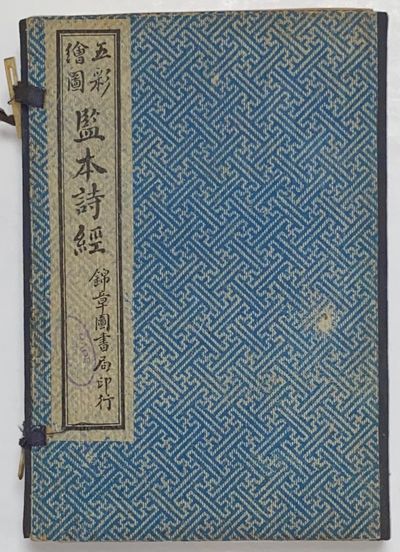 五彩
繪圖
監本詩經
錦章圖書局印行